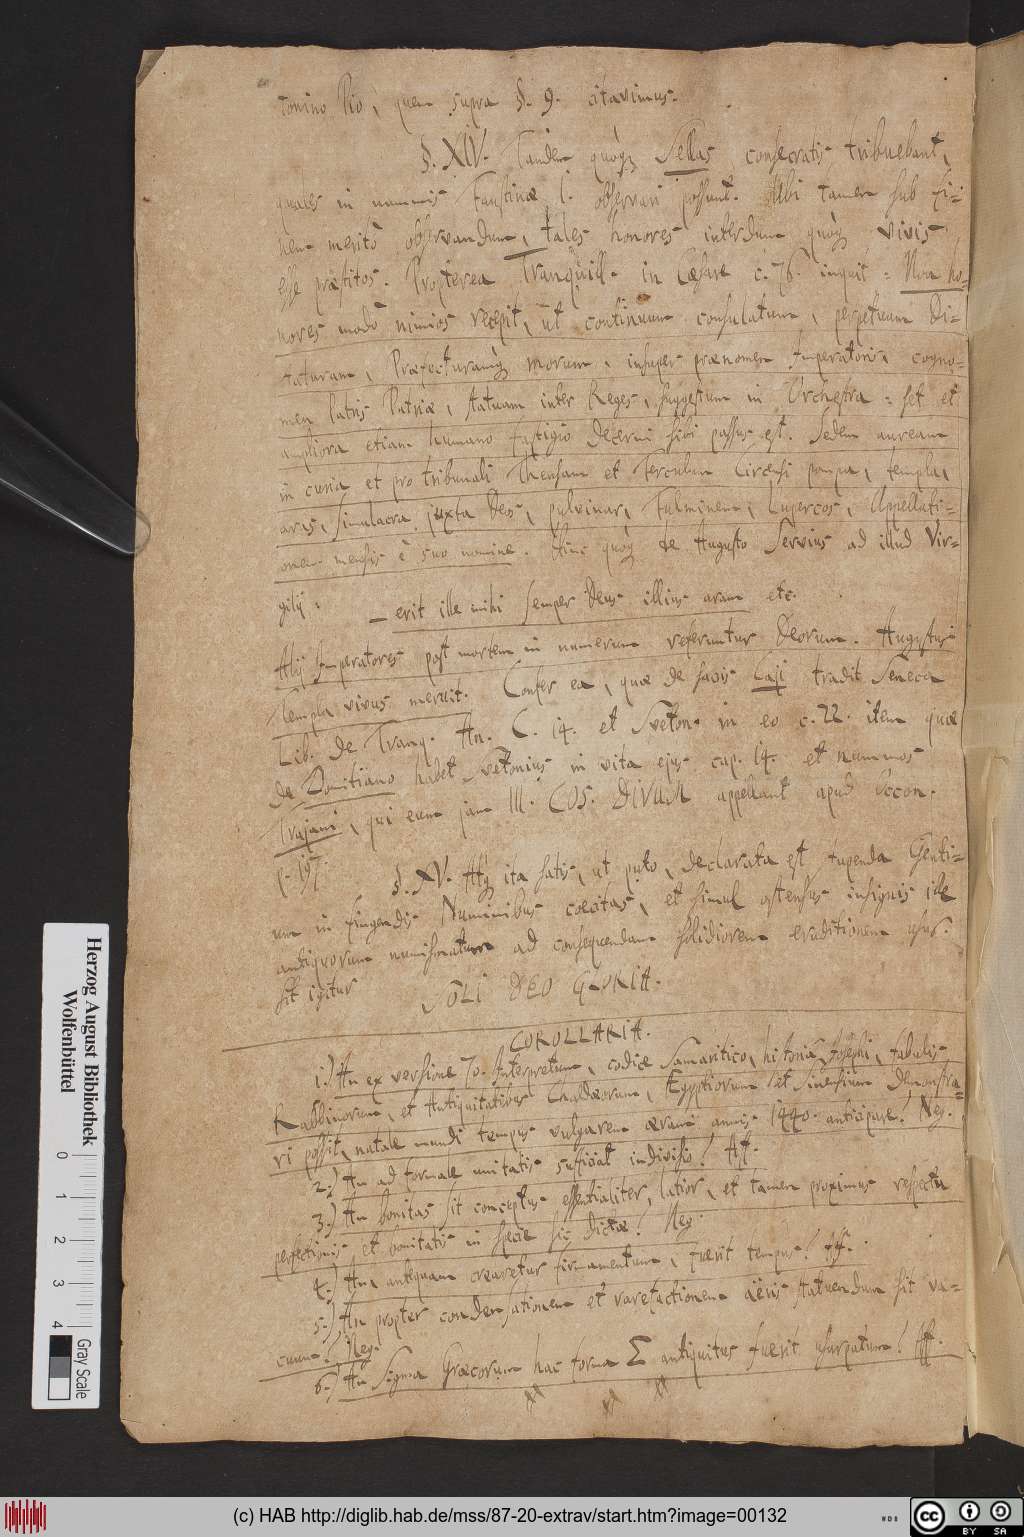 tonino Pio, quem supra §. 9. citavimus.
§. XIV. Tandem quoq; Sellas consecratis tribuebant,
quales in nummis Faustinæ l. observari possunt. Ubi tamen sub fi-
nem meritò observandum, tales honores interdum quoq; vivis
esse præstitos. Propterea Tranquill. in Cæsare c. 76. inquit: Non ho-
nores modò nimios recepit, ut continuum consulatum, perpetuam Di-
taturam, Præfecturamq; morum, insuper prænomen Imperatoris, cogno-
men Patris Patriæ, statuam inter Reges, suggestum in Orchestra: set et
ampliora etiam humano fastigio decerni sibi passus est. Sedem auream
in curia et pro tribunali Thensam et Ferculum Circensi pompa, templa,
aras, simulacra juxta Deos, pulvinar, Fulminem, Lupercos, Appellati-
onem mensis è suo nomine. Hinc quoq; de Augusto Servius ad illud Vir-
gilij:
_ erit ille mihi semper Deus illius aram etc.
Alij Imperatores post mortem in numerum referuntur Deorum. Augustus
Templa vivus meruit. Confer ea, quæ de suis Caji tradit Seneca
Lib. de Tranq. An. C. 14. et Sveton. in eo c. 22. item quæ
de Domitiano habet Svetonius in vita ejus cap. 14. et nummos
Trajani, qui eum jam III. COS. DIVUM appellant apud Occon.
p. 197.
§. XV. Atq; ita satis, ut puto, declarata est stupenda Genti-
um in fingendis Numinibus cœcitas, et simul ostensus insignis ille
antiquorum numismatum ad consequendam solidiorem eruditionem usus.
Sit igitur SOLI DEO GLORIA.
COROLLARIA.
1.) An ex versione 70. Interpretum, codice Samaritico, historia Josephi, fabulis
Rabbinorum, et Antiquitatibus Chaldæorum, Egyptiorum et Sinensium demonstra-
ri possit, natale mundi tempus vulgarem æram annis 1440. anticipare? Neg.
2.) An ad formale unitatis sufficiat indivisio? Aff.
3.) An bonitas sit conceptus essentialiter, latior, et tamen proximus respectu
perfectionis et bonitatis in specie sic dictæ? Neg.
4.) An, antequam crearetur firmamentum, fuerit tempus? Aff.
5.) An propter condensationem et rarefactionem aëris statuendum sit va-
cuum? Neg.
6.) An Sigma Græcorum hac forma Σ antiquitus fuerit usurpatum? Aff.
Herzog August Bibliothek
Wolfenbüttel
0 1 2 3 4
Gray Scale
(c) HAB http://diglib.hab.de/mss/87-20-extrav/start.htm?image=00132
WDB
cc BY SA